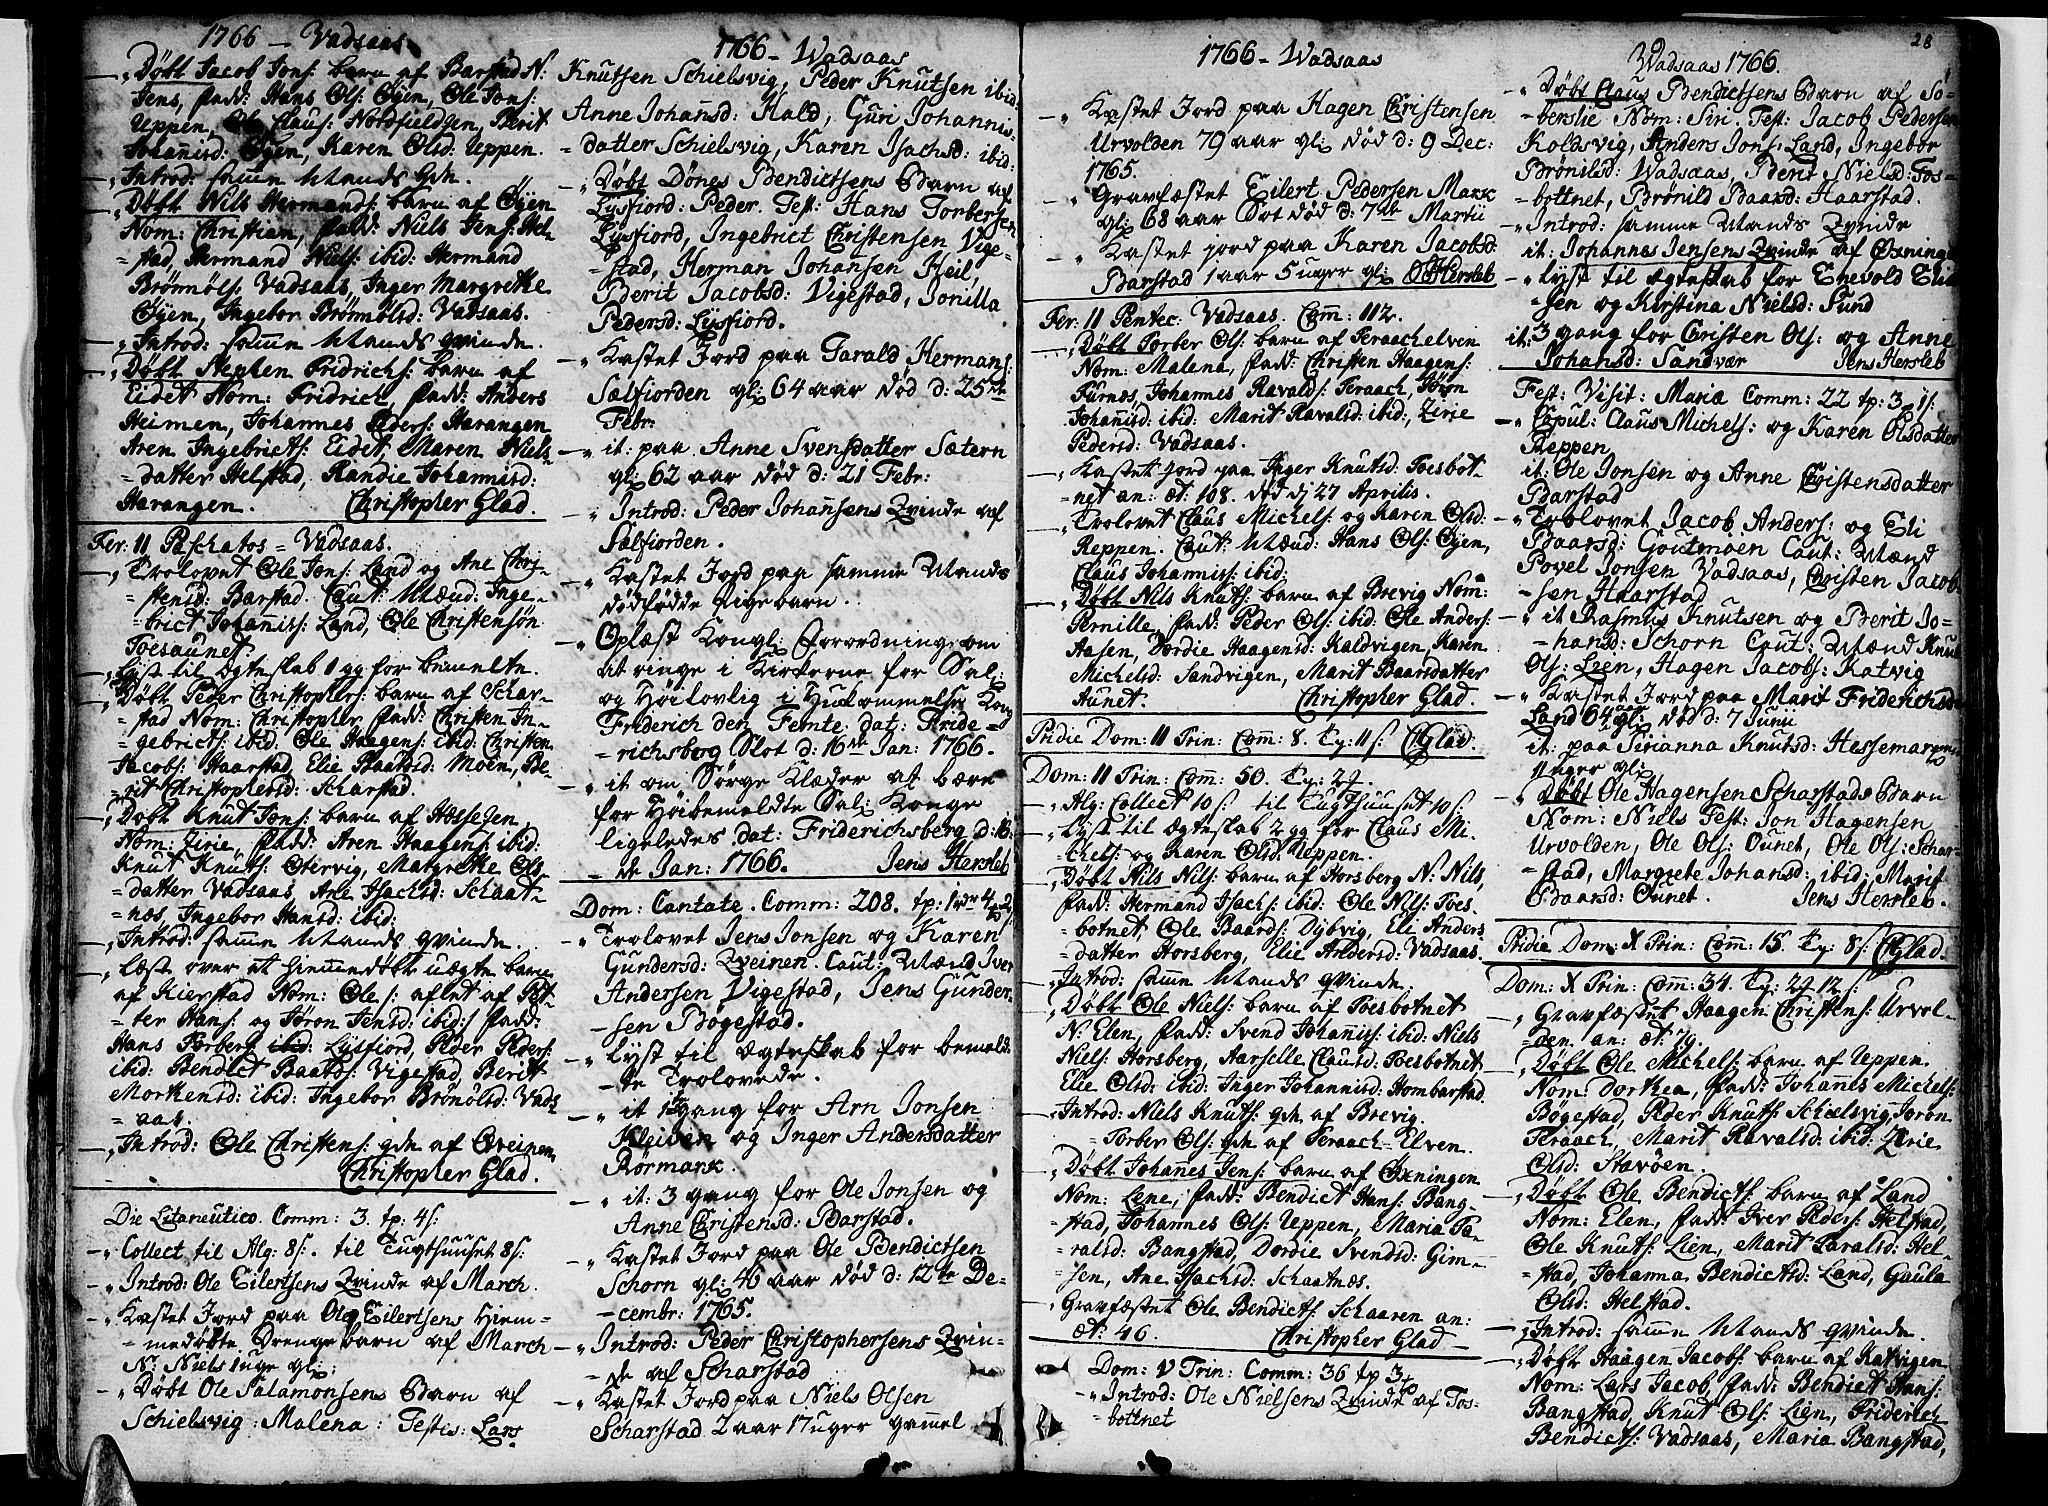 1766 - Vadsaas
—„ Døbt Jacob Jons: barn af Barstad N:
Jens, Fadd: Hans Ols: Øyen, Ole Jons:
Reppen, Ole Claus: Nordfieldgen, Berit
Johannisd: Øyen, Karen Olsd: Reppen.
—„ Introd: samme Mands Qv.
—„ Døbt Nils Hermands: barn af Øyen
Nom: Christian, Fadd: Niels Jens: Hel-
=stad, Hermand Niels: ibid: Hermand
Brønnøls: Vadsaas, Inger Margrethe
Øyen, Ingebor Brønnølsd: Vadsaas.
—„ Introd: samme Mands qvinde.
—„ Døbt Stephen Fridrichs: barn af
Eidet Nom: Fridrich, Fadd: Anders
Heimen, Johannes Peders: Harangen
Aren Ingebricts: Eidet, Maren Niels-
=datter Helstad, Randie Johannisd:
Harangen. Christopher Glad.
Fer: 11 Paschatos = Vadsaas.
—„ Trolovet Ole Jons: Land og Ane Chri-
=stensd: Barstad. Caut: Mænd: Inge-
=brict Johanniss: Land, Ole Christensøn
Toesaunet
—„ Lyst til Ægteskab 1 gg for bemelte.
—„ Døbt Peder Christophers: barn af Schar-
=stad Nom: Christopher, Fadd: Christen In-
=gebricts: ibid: Ole Haagens: ibid: Christen
Jacobs: Haarstad, Elie Baarsd: Moen, Be-
rit Christophersd: Scharstad.
—„ Døbt Knut Jons: barn af Hossesen,
Nom: Zirie, Fadd: Aren Haagens: ibid:
Knut Knuts: Otervig, Matgrethe Ols-
=datter Vadsaas, Ane Isachsd: Schaat-
=næs, Ingebor Hansd: ibid:
—„ Introd: samme Mands qvinde.
—„ Læst over et hiemmedøbt uægte barn
af Kierstad Nom: Ole /: aflet af Pet-
=ter Hans: og Jøron Jensd: ibid:/ Fadd:
Hans Torberg: Lysfiord, Peder Peders:
ibid: Bendict Baards: Vigestad, Berit
Mortensd: ibid: Ingebor Brønølsd: Vads-
=aas.
—„ Introd: Ole Christens: qv. af Qveinen.
Christopher Glad.
Die Litaneutico. Comm: 3. tp: 4 ß:
—„ Collect til Alg: 8 ß:. til Tugthuuset 8 ß:
—„ Introd: Ole Eilertsens Qvinde af March.
—„ Kastet Jord paa Ole Eilertsens Hiem-
=medøbte Drengebarn af March
N: Niels 1 uge gl:
—„ Døbt Ole Salamonsens Barn af
Schielsvig: Malena: Testes: Lars
1766 - Wadsaas
Knutsen Schielsvig, Peder Knutsen ibid:
Anne Johansd: Hald, Guri Johannis-
=datter Schielsvig, Karen Isachsd: ibid:
—„ Døbt Dønes Bendictsens Barn af
Lysfiord: Peder. Test: Hans Torbersen
Lysfiord, Ingebrict Christensen Vige-
=stad, Herman Johansen Keil,
Berit Jacobsd: Vigestad, Jonilla
Pedersd: Lysfiord.
—„ Kastet Jord paa Tarald Hermans:
Salfiorden gl: 64 aar død d: 25de
Febr:
—„ it: paa Anne Svensdatter Sætern
gl: 62 aar død d: 21 Febr:
—„ Introd: Peder Johansens Qvinde af
Salfiorden.
—„ Kastet Jord paa samme Mands
dødfødde Pigebarn.
—„ Oplæst Kongl: Forordning om
at ringe i Kirkerne for Sal:
og Høilovlig i Hukommelse Kong
Friderich den Femte dat: Fride-
=richsberg Slot d: 16de Jan: 1766.
—„ it om Sørge Klæder at bære
for Høibemeldte Sal: Konge
ligeledes dat: Friderichsberg d: 16:
=de Jan: 1766. Jens Hersleb
Dom: Cantate. Comm: 208. tp: 1
—„ Trolovet Jens Jonsen og Karen
Gundersd: Qveinen. Caut: Mænd Iver
Andersen Vigestad, Jens Gunder-
=sen Bøgestad.
—„ Lyst til Ægteskab for bemeld-
=te Trolovede.
—„ it gang for Arn Jonsen
Kleivan og Inger Andersdatter
Rørmark.
—„ it: 3 gang for Ole Jonsen og
Anne Christensd: Barstad.
—„ Kastet Jord paa Ole Bendictsen
Schorn gl: 46 aar død d: 12te De-
=cembr: 1765.
—„ Introd: Peder Christophersens Qvin-
=de af Scharstad
—„ Kastet Jord paa Niels Olsen
Scharstad 2 aar 17 uger gammel
1766 - Wadsaas
—„ Kastet Jord paa Hagen Christensen
Urvolden 79 aar gl: død d: 9 Dec:
1765.
—„ Gravfæstet Eilert Pedersen Mark
gl: 68 aar død d: 7de Martii
—„ Kastet jord paa Karen Jacobsd:
Barstad 1 aar 5 uger gl: Hersleb
Fer: 11 Pentec: Vadsaas. Comm: 112.
—„ Døbt Torber Ols: barn af Teraachelven
Nom: Malena, Fadd: Christen Haagens:
Furnæs Johannes Ravalds: Teraach, Jørn
Johannisd: ibid: Marit Ravalsd: ibid:, Zirie
Pedersd: Vadsaas.
—„ Kastet jord paa Inger Knutsd: Toesbot-
=net an: æt: 108. død d: 27 Aprilis.
—„ Trolovet Claus Michels: og Karen Olsd:
Reppen. Caut: Mænd: Hans Ols: Øyen,
Claus Johanniss: ibid:
—„ Døbt Nils Knuts: barn af Brevig Nom:
Pernille, Fadd: Peder Ols: ibid: Ole Anders:
Aasen, Dordie Haagensd: Kaldvigen, Karen
Michelsd: Sandvigen, Marit Baarsdatter
Aunet. Christopher Glad.
Pridie Dom: 11 Trin: Comm: 8. Tp: 11 ß: CGlad.
Dom: 11 Trin: Comm: 50. Tp: 2
—„ Alg: Collect 10 ß: til Tugthuuset 10 ß:
—„ Lyst til Ægteskab 2 gg for Claus Mi-
chels: og Karen Olsd: Reppen.
—„ Døbt Nils Nils: barn af Horsberg N: Nils,
Fadd: Hermand Isachs: ibid: Ole Nils: Toes-
botnet, Ole Baards: Dybvig, Eli Anders
datter Horsberg, Elie Andersd: Vadsaas.
—„ Introd: samme Mands qvinde:
—„ Døbt Ole Niels: barn af Toesbotnet
N: Elen, Fadd: Svend Johanniss: ibid: Niels
Niels: Horsberg, Aarselle Clausd: Toesbotnet
Elie Olsd: ibid: Inger Johannisd: Hombarstad.
—„ Introd: Niels Knuts: qv. af Brevig.
—„ Torber Ols: qv. af Teraach-Elven.
—„ Døbt Johanes Jens: barn af Øxningen
Nom: Lene, Fadd: Bendict Hans: Bang-
=stad, Johannes Ols: Reppen, Maria Ta-
=ralsd: Bangstad, Dordie Svendsd: Gim-
sen, Ane Isachsd: Schaatnæs.
—„ Gravfæstet Ole Bendicts: Schaaren an:
æt: 46. Christopher Glad —
Dom: V Trin: Comm: 36 tp 3
—„ Introd: Ole Nielsens Qvinde af Tos-
=bottnet
28
Wadsaas 1766.
—„ Døbt Claus Bendictsens Barn af So-
=berslie Nom: Siri. Test: Jacob Pedersen
Koldsvig, Anders Jons: Land, Ingebor
Brønilsd: Wadsaas, Berit Nielsd: Tos-
=bottnet, Brønild Baarsd: Haarstad.
—„ Introd: samme Mands Qvinde
it: Johannes Jensens Qvinde af Øxning
—„ Lyst til Ægteskab for Enevold Eli-
=sen og Kirstina Nielsd: Sund
it: 3 gang for Christen Ols: og Anne
Johansd: Sandvær Jens Hersleb
Fest: Visit: Mariæ Comm: 22 tp: 3 1 ß:
—„ Copul: Claus Michels: og Karen Olsdatter
Reppen
it: Ole Jonsen og Anne Christensdatter
Barstad
—„ Trolovet Jacob Anders: og Eli
Baarsd: Goutmoen Caut: Mænd
Povel Jonsen Vadsaas, Christen Jacob-
=sen Haarstad
—„ it Rasmus Knutsen og Berit Jo-
=hansd: Schorn Caut: Mænd Knut
Ols: Lien, Hagen Jacobs: Katvig
—„ Kastet Jord paa Marit Friderichsd:
Land 64 aar gl: død d: 7 Junii
it: paa Sirianna Knutsd: Hessemar
11 uger gl:
—„ Døbt Ole Hagensen Scharstads Barn
Nom: Niels Test: Jon Hagensen
Urvolden, Ole Ols: Ounet, Ole Ols: Schar-
=stad, Margrete Johansd: ibid: Marit
Baarsd: Ounet. Jens Hersleb.
Pridie Dom: X Trin: Comm: 15. Tp: 8 ß: CGlad.
Dom: X Trin: Comm: 34. Tp: 2 12 ß:
—„ Gravfæstet Haagen Christens: Urvol-
=den an: æt: 79.
—„ Døbt Ole Michels: barn af Reppen
Nom: Dorthea, Fadd: Johannes Michels:
Bøgestad, Peder Knuts: Schielsvig, Jøron
Teraach, Marit Ravalsd: ibid: Zirie
Olsd: Stavøen.
—„ Døbt Ole Bendicts: barn af Land
Nom: Elen, Fadd: Iver Peders: Helstad,
Ole Knuts: Lien, Marit Taralsd: Hel-
=stad, Johanna Bendictsd: Land, Gaula
Olsd: Helstad.
—„ Introd: samme Mands qvinde.
—„ Døbt Haagen Jacobs: barn af Katvigen
Nom: Lars Jacob, Fadd: Bendict Hans:
Bangstad, Knut Ols: Lien, Friderich
Bendicts: Vadsaas, Maria Bangstad,